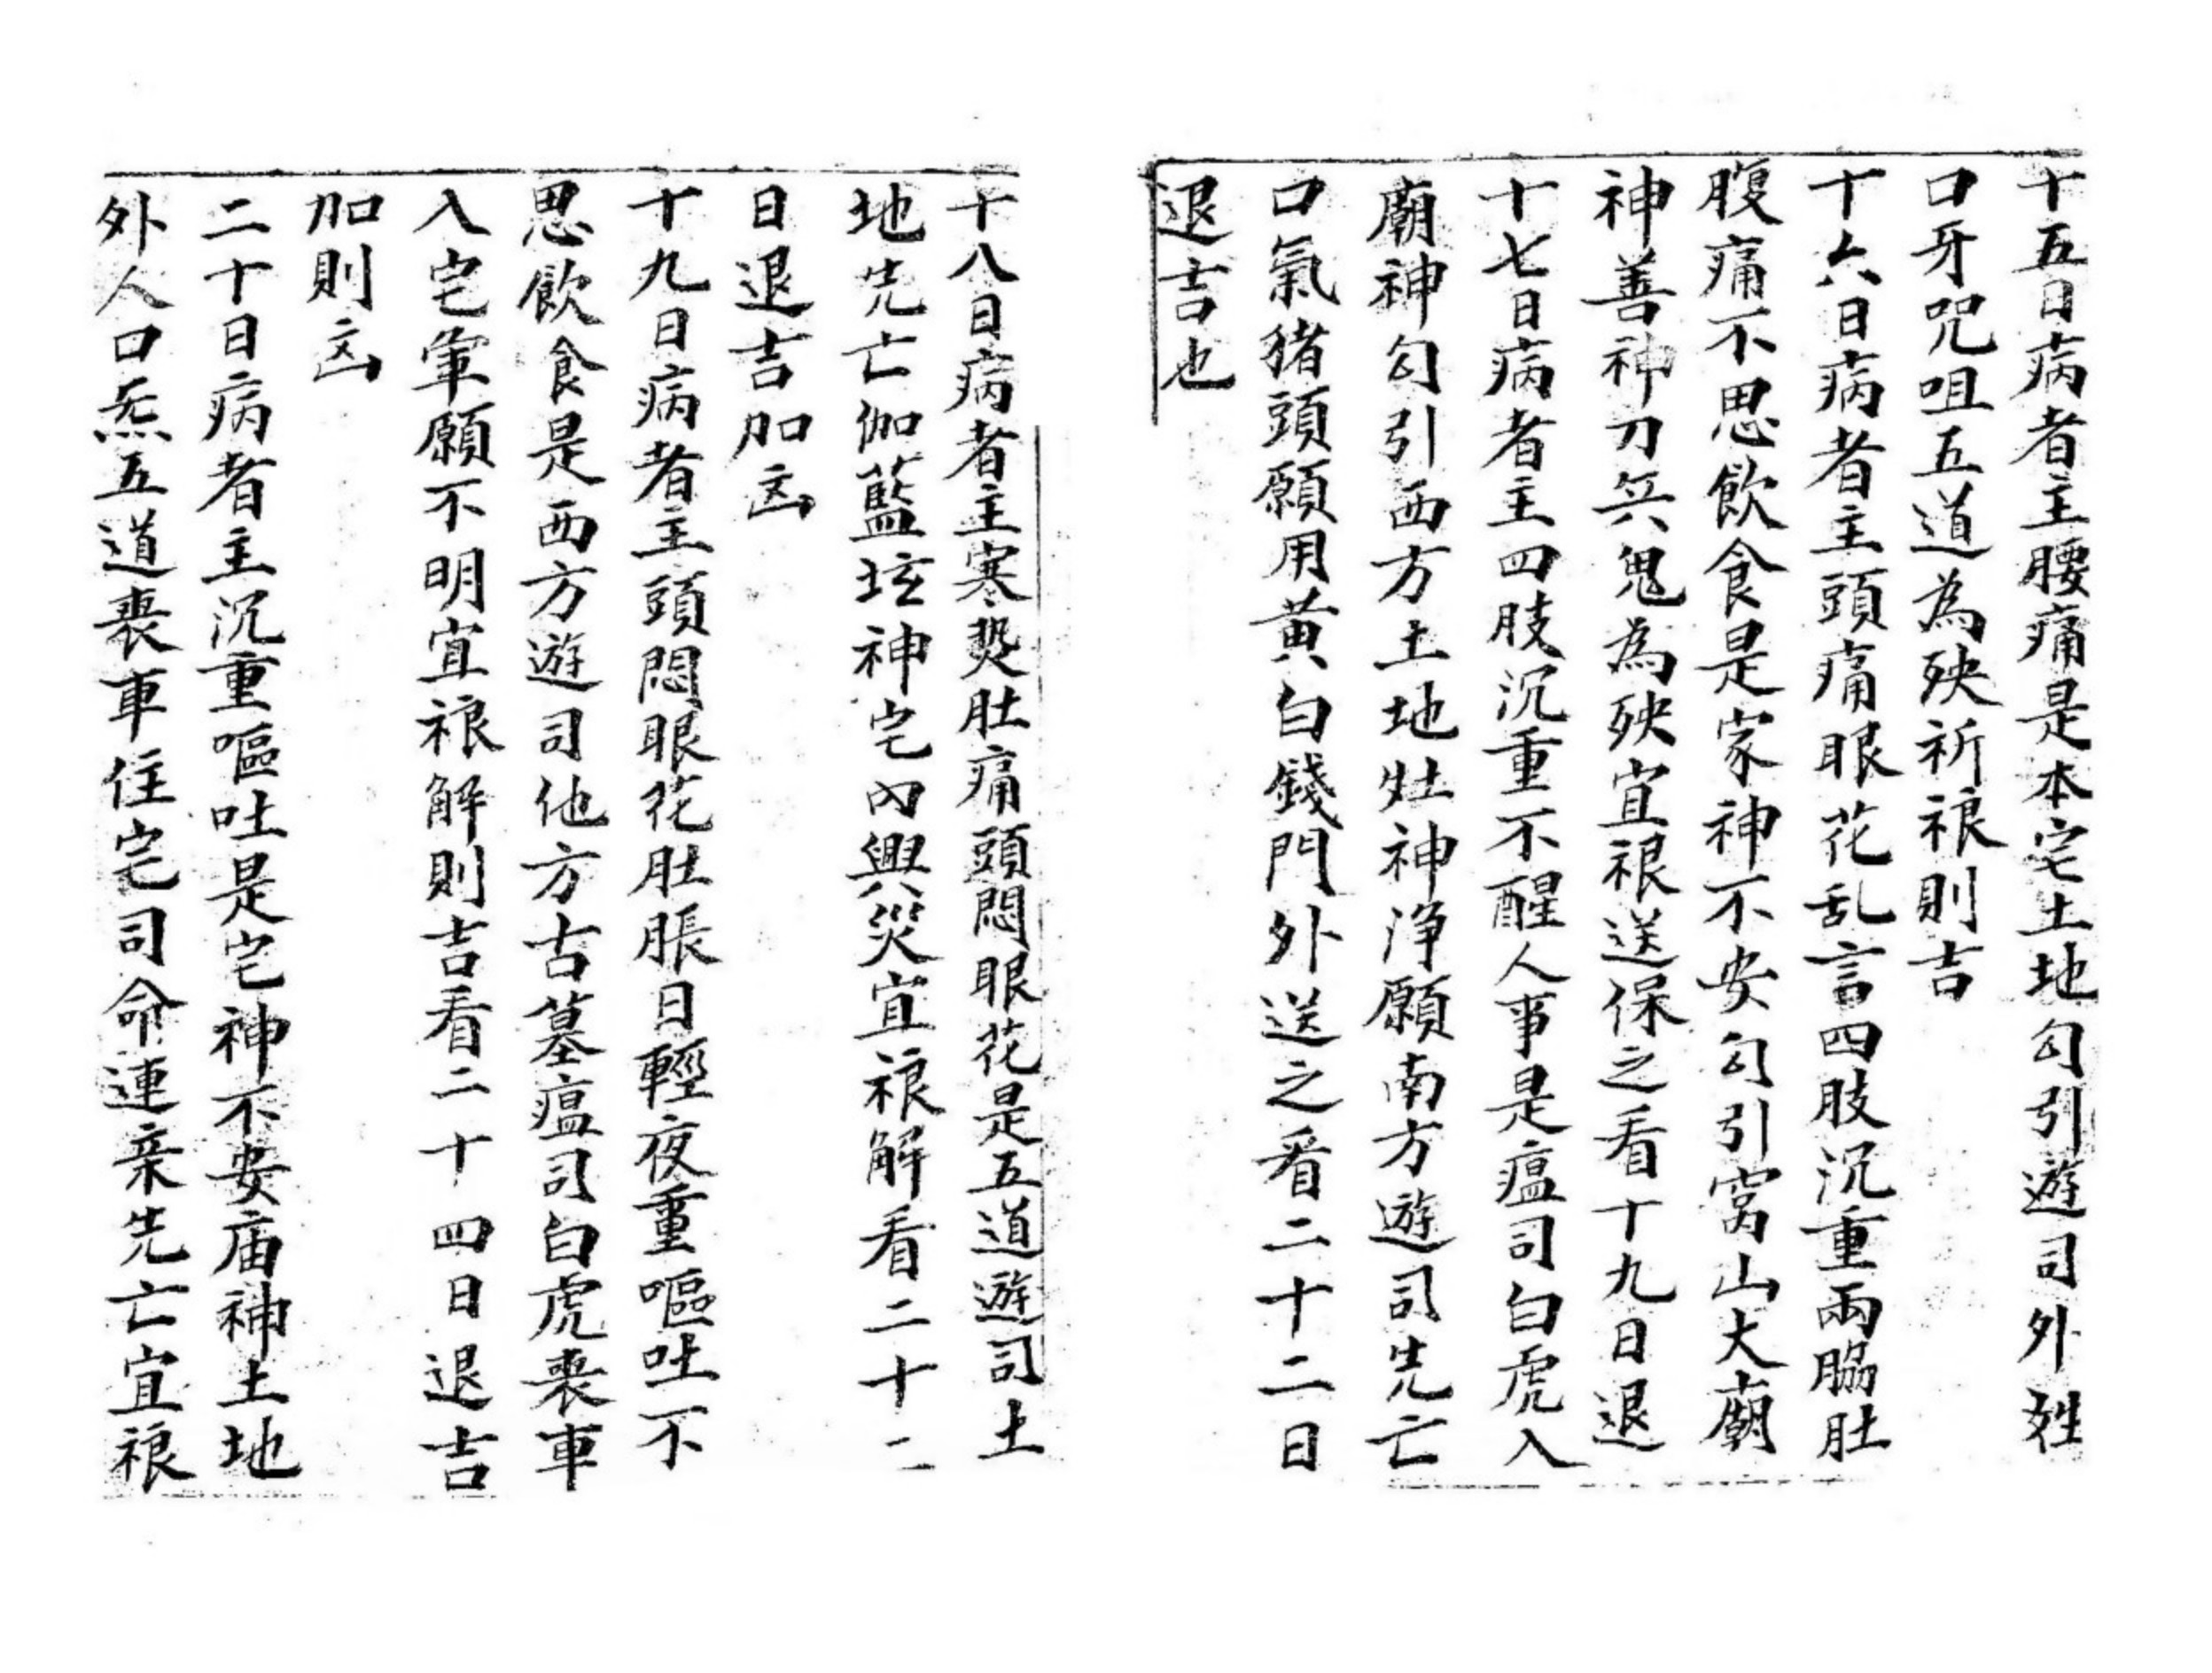 十五日病者主腰痛是本宅土地勾引遊司外姓
口牙咒咀五道為殃祈禳則吉
十六日病者主頭痛眼花乱言四肢沉重兩脇肚
腹痛不思飲食是家神不安勾引窩山大廟
神善神刀兵鬼為殃宜禳送保之看十九日退
十七日病者主四肢沉重不醒人事是瘟司白虎入
廟神勾引西方土地灶神淨願南方遊司先亡
口氣猪頭願用黃白錢門外送之看二十二日
退吉也
十八日病者主寒热肚痛頭悶眼花是五道遊司土
地先亡伽藍坛神宅內興災宜禳解看二十二
日退吉加凶
十九日病者主頭悶眼花肚脹日輕夜重嘔吐不
思飲食是西方遊司他方古墓瘟司白虎喪車
入宅軍願不明宜禳解則吉看二十四日退吉
加則凶
二十日病者主沉重嘔吐是宅神不安庙神土地
外人口炁五道喪車住宅司命連亲先亡宜禳